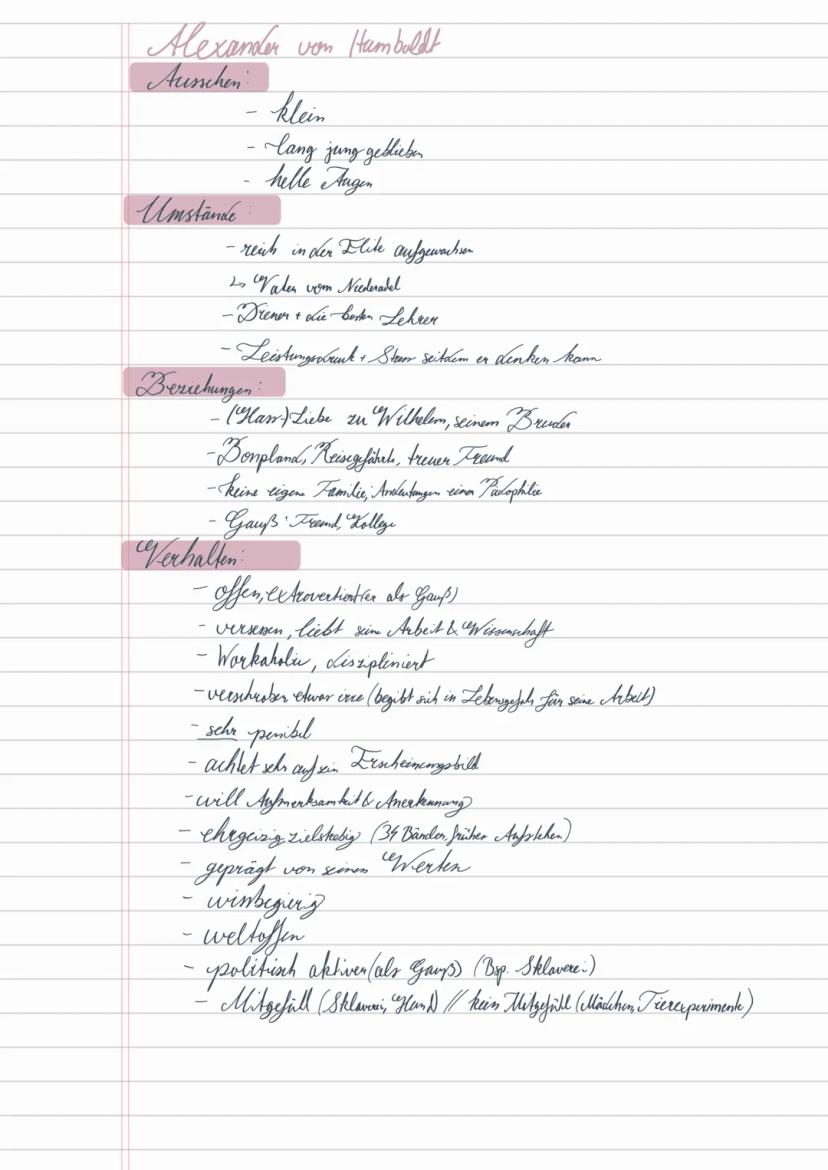 Alexander von Humboldt
Aussehen:
- klein
- lang jung geblieben
- helle Augen
Umstände:
- reich in der Elite aufgewachsen
↳ Vater vom Niederadel
- Diener + die besten Lehrer
- Leistungsdruck + Stress seitdem er denken kann
Beziehungen:
- (Hass-)Liebe zu Wilhelm, seinem Bruder
- Bonpland, Reisegefährte, treuer Freund
- keine eigene Familie, Andeutungen einer Pädophilie
- Gauß: Freund, Kollege
Verhalten:
- offen, extrovertiert(er als Gauß)
- versessen, liebt seine Arbeit & Wissenschaft
- Workaholic, diszipliniert
- verschroben etwas irre (begibt sich in Lebensgefahr für seine Arbeit)
- sehr penibel
- achtet sehr auf sein Erscheinungsbild
- will Aufmerksamkeit & Anerkennung
- ehrgeizig zielstrebig (34 Bände, früher Aufstehen)
- geprägt von seinen Werten
- wissbegierig
- weltoffen
- politisch aktiver (als Gauß) (Bsp. Sklaverei)
- Mitgefüll (Sklaverei, Hund) // kein Mitgefüll (Mädchen, Tierexperimente)